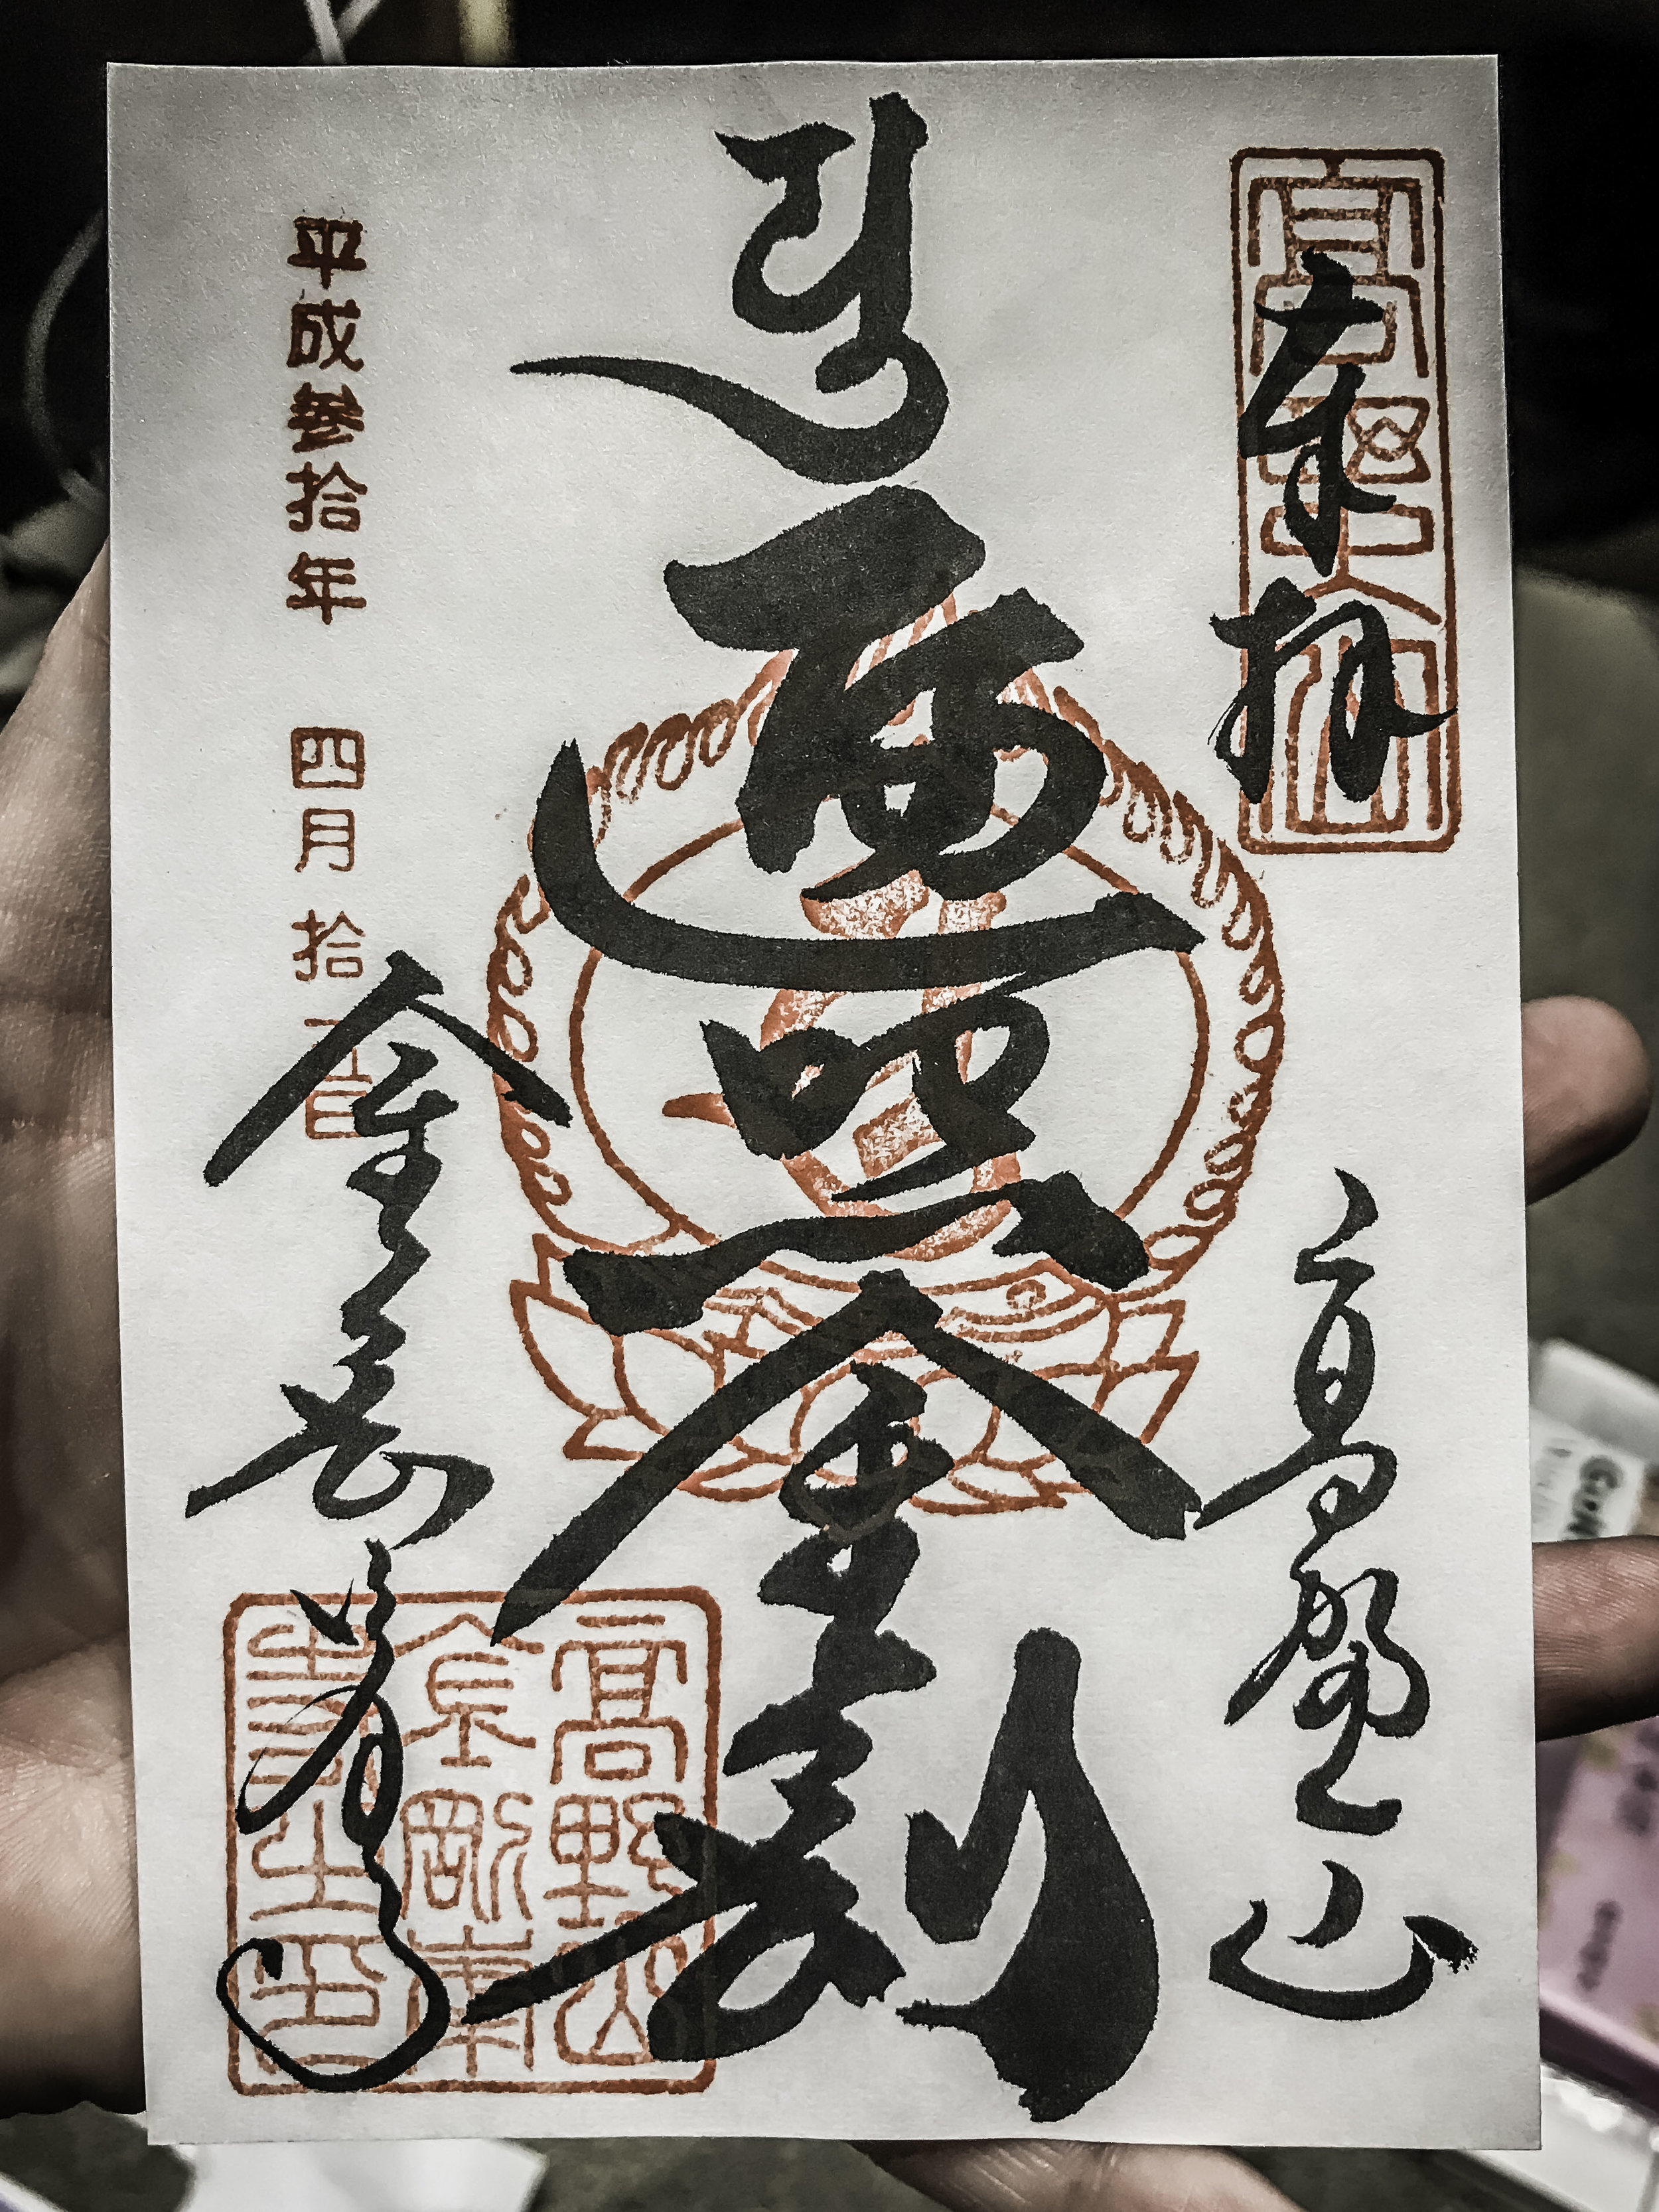 奉拝
高野山
遍照金剛
平成参拾年 四月 拾
金剛峯寺
高野山
金剛峯
寺之印